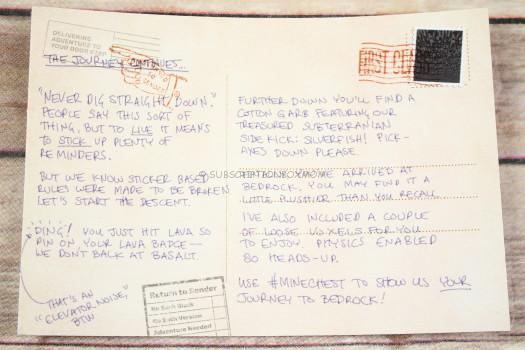 DELIVERING
ADVENTURE TO
YOUR DOOR STEP
THE JOURNEY CONTINUES...
"NEVER DIG STRAIGHT DOWN."
PEOPLE SAY THIS SORT OF
THING, BUT TO LIVE IT MEANS
TO STICK UP PLENTY OF
REMINDERS.
BUT WE KNOW STICKER BASED
RULES WERE MADE TO BE BROKEN
LET'S START THE DESCENT.
DING! YOU JUST HIT LAVA SO
PIN ON YOUR LAVA BADGE—
WE DON'T BALK AT BASALT.
THAT'S AN
"ELEVATOR NOISE,"
BTW
Return to Sender
No Such Block
No Such Version
Adventure Needed
FIRST
FURTHER DOWN YOU'LL FIND A
COTTON GARB FEATURING OUR
TREASURED SUBTERRANIAN
SIDE KICK: SILVERFISH! PICK-
AXES DOWN PLEASE.
©SUBSCRIPTIONBOXMOM
ARRIVED AT
BEDROCK. YOU MAY FIND IT A
LITTLE PLUSHIER THAN YOU RECALL
I'VE ALSO INCLUDED A COUPLE
OF LOOSE VOXELS FOR YOU
TO ENJOY. PHYSICS ENABLED
SO HEADS-UP.
USE #MINECHEST TO SHOW US YOUR
JOURNEY TO BEDROCK!